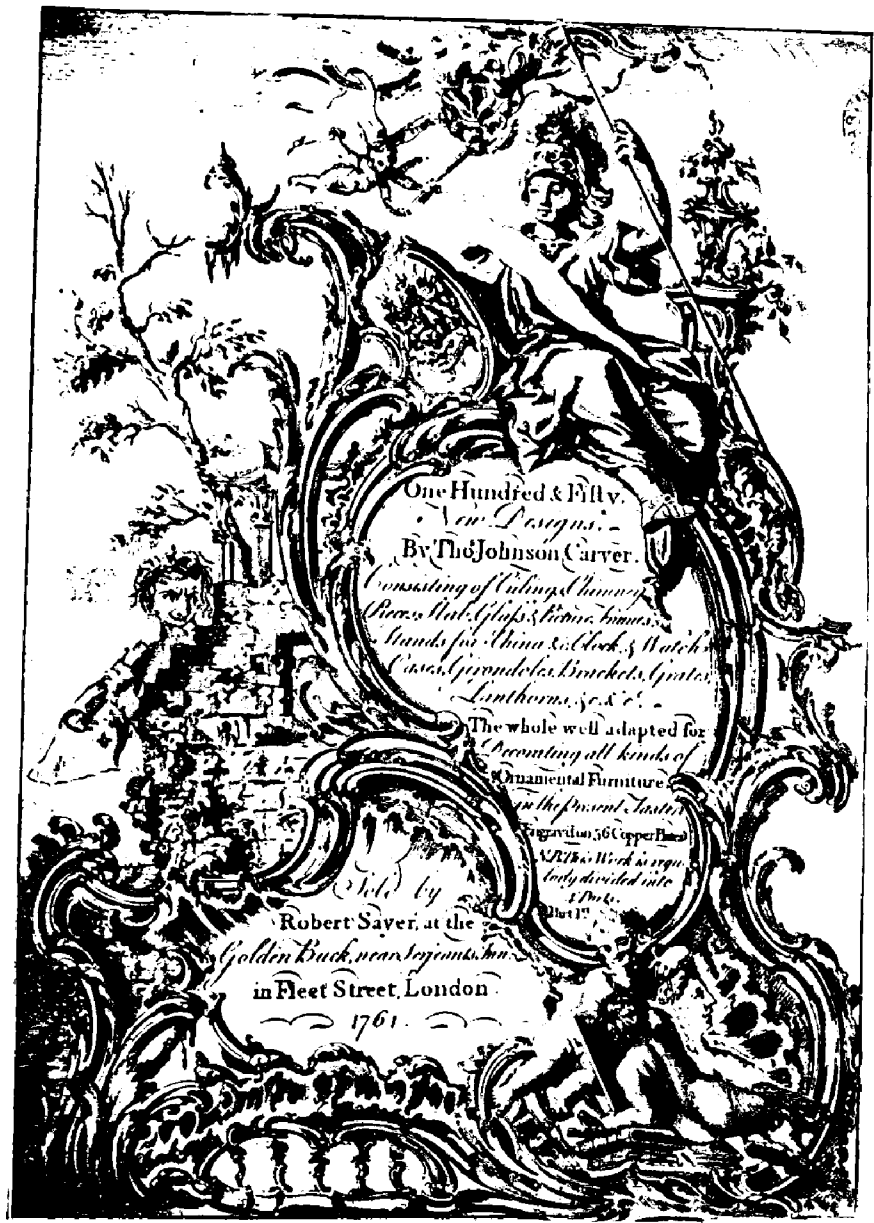 One Hundred & Fifty.
New Designs.
By Tho.s Johnson Carver.
Consisting of Cieling, Chimney
Pieces, Slab, Glass & Picture Frames,
Stands for China &c. Clock, & Watch
Cases, Girondoles, Brackets, Grates,
Lanthorns, &c. &c.
The whole well adapted for
Decorating all kinds of
Ornamental Furniture.
in the present Taste
Engrav'd on 56 Copper Plates
N.B. This Work is regu
larly divided into
Parts
Sold by
Robert Sayer, at the
Golden Buck, near Serjeants Inn
in Fleet Street, London
1761.